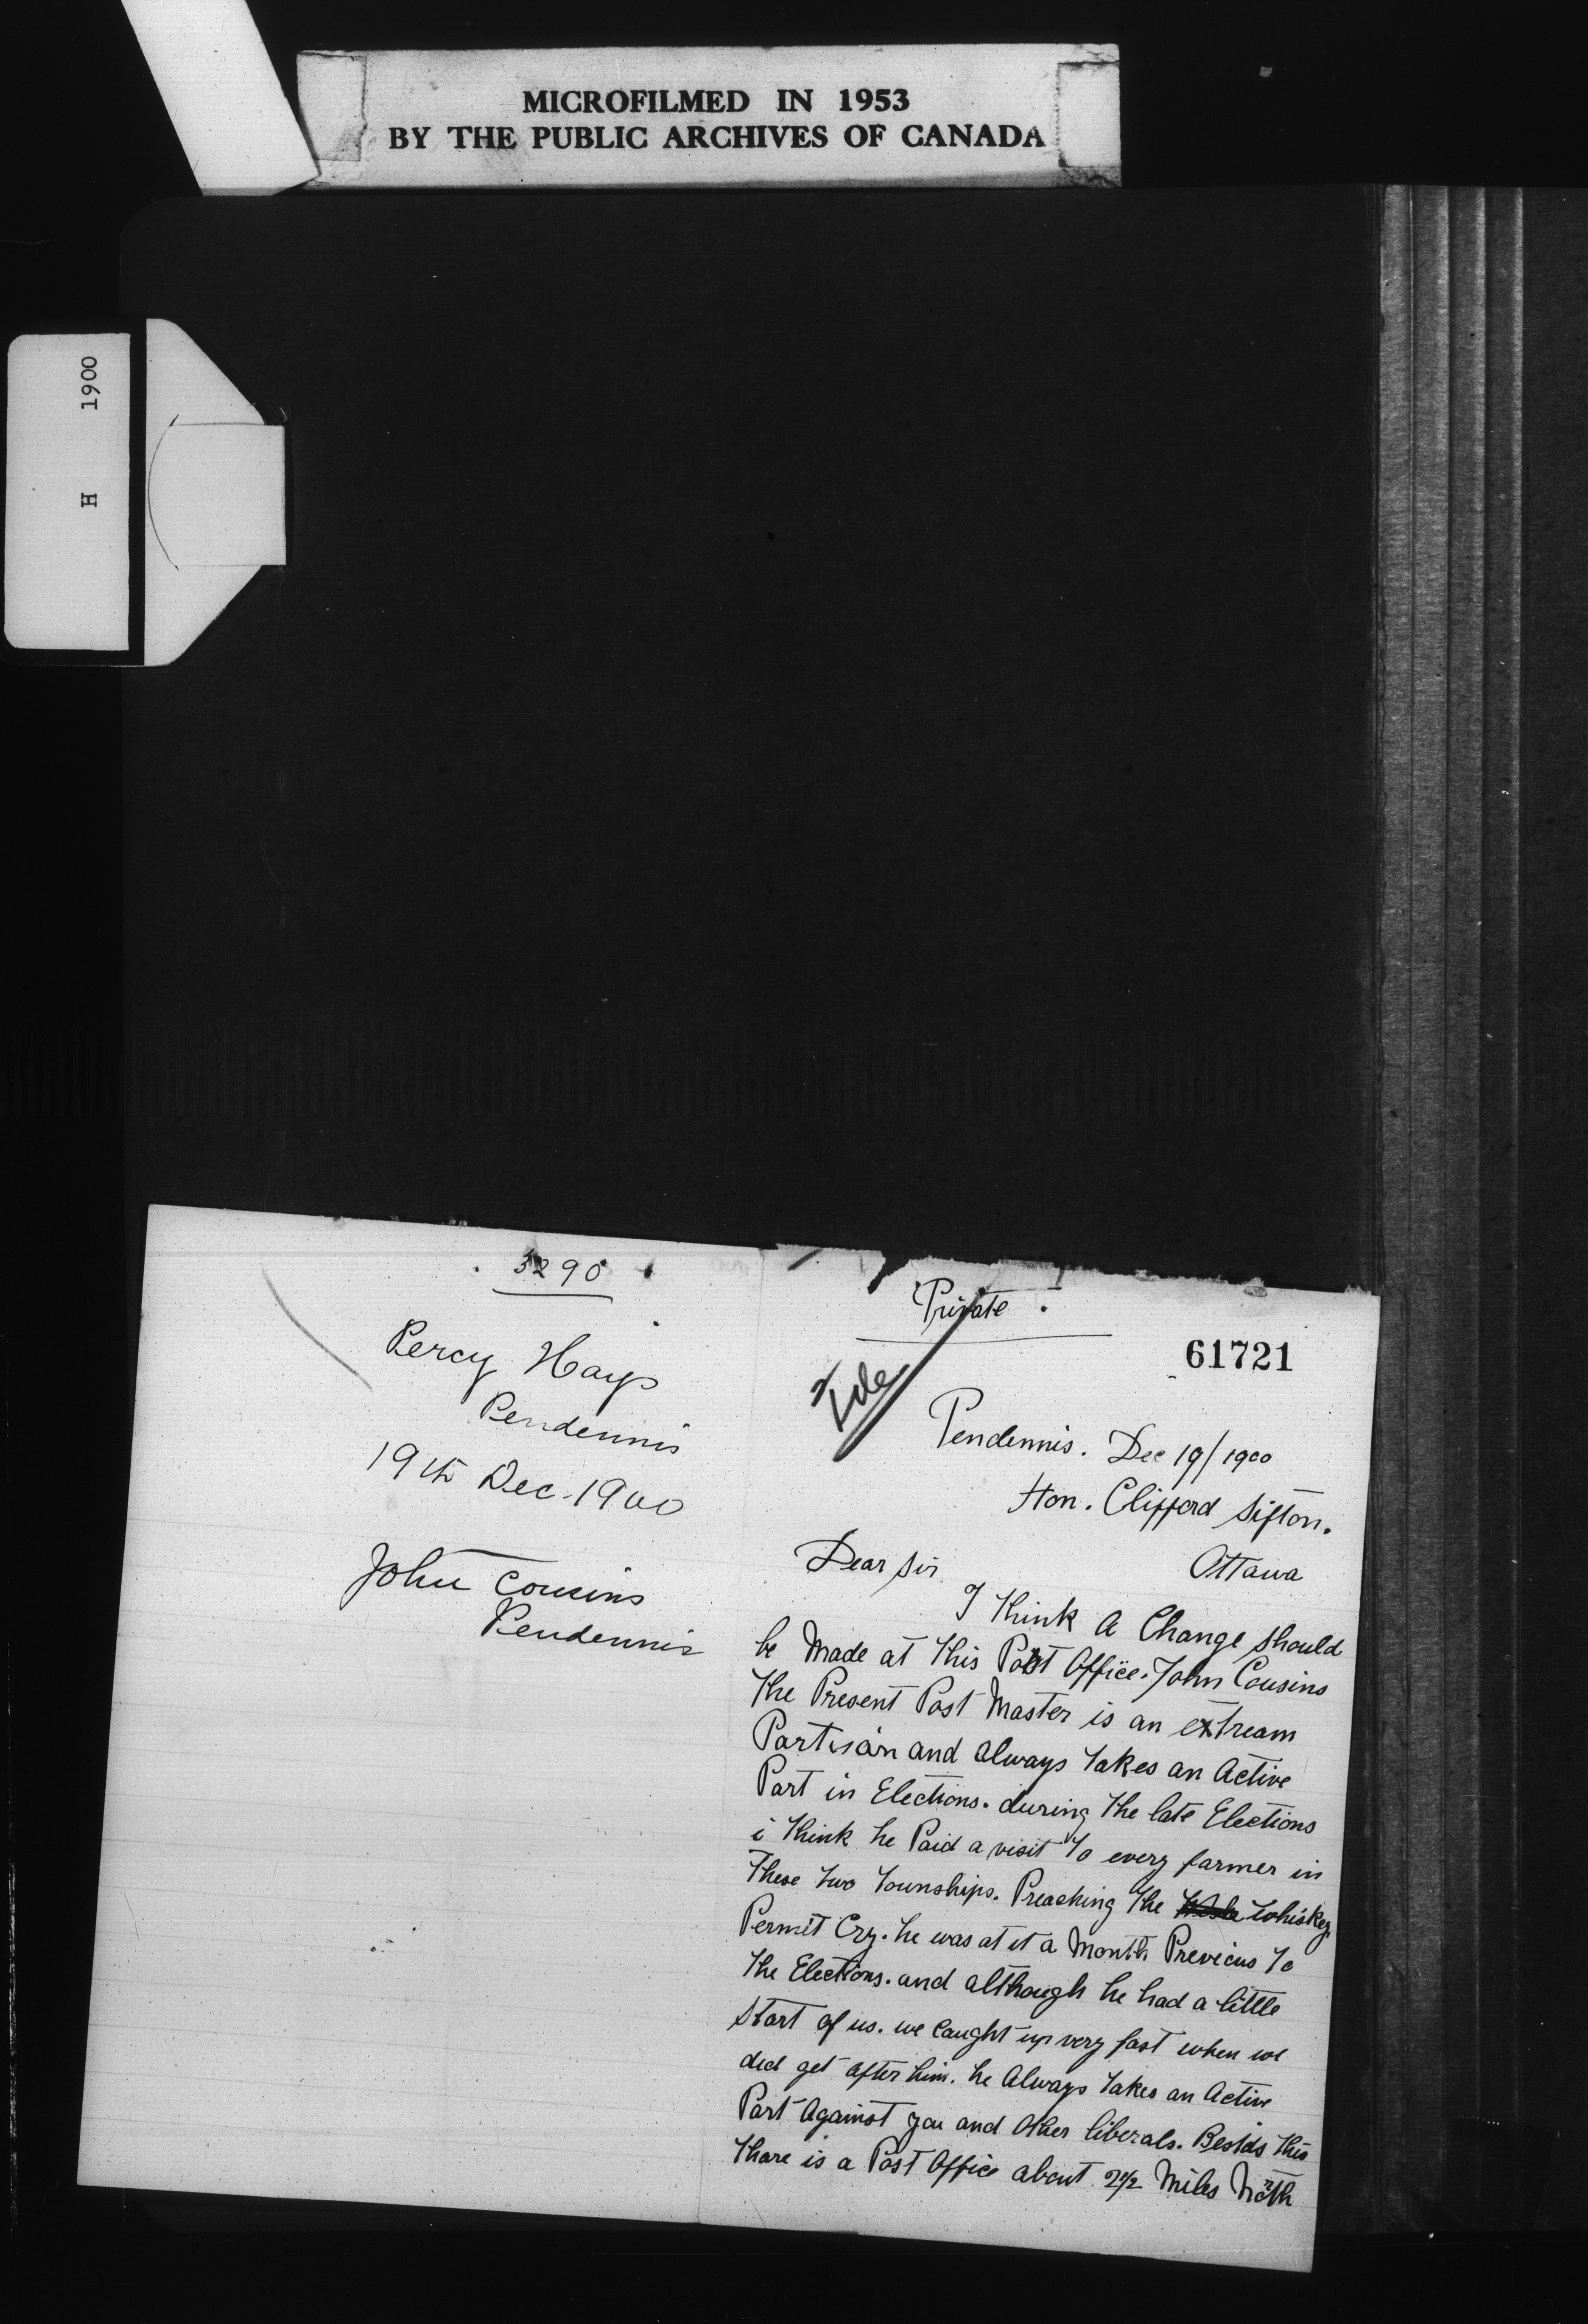 MICROFILMED IN 1953
BY THE PUBLIC ARCHIVES OF CANADA
H 1900
3290
Percy Hays
Pendennis
19th Dec. 1900
John Cousins
Pendennis
Private
File
61721
Pendennis. Dec 19/1900
Hon. Clifford Sifton.
Ottawa
Dear Sir
I think a Change should
be Made at this Post Office. John Cousins
the Present Post Master is an extream
Partisan and always takes an Active
Part in Elections. during the late Elections
i think he Paid a visit to every farmer in
These two Townships. Preaching the whiskey
Permit Cry. he was at it a Month Previous to
the Elections. and although he had a little
Start of us. we Caught up very fast when we
did get after him. he Always takes an Active
Part Against you and Other liberals. Besids this
thare is a Post Office about 2 1/2 Miles North